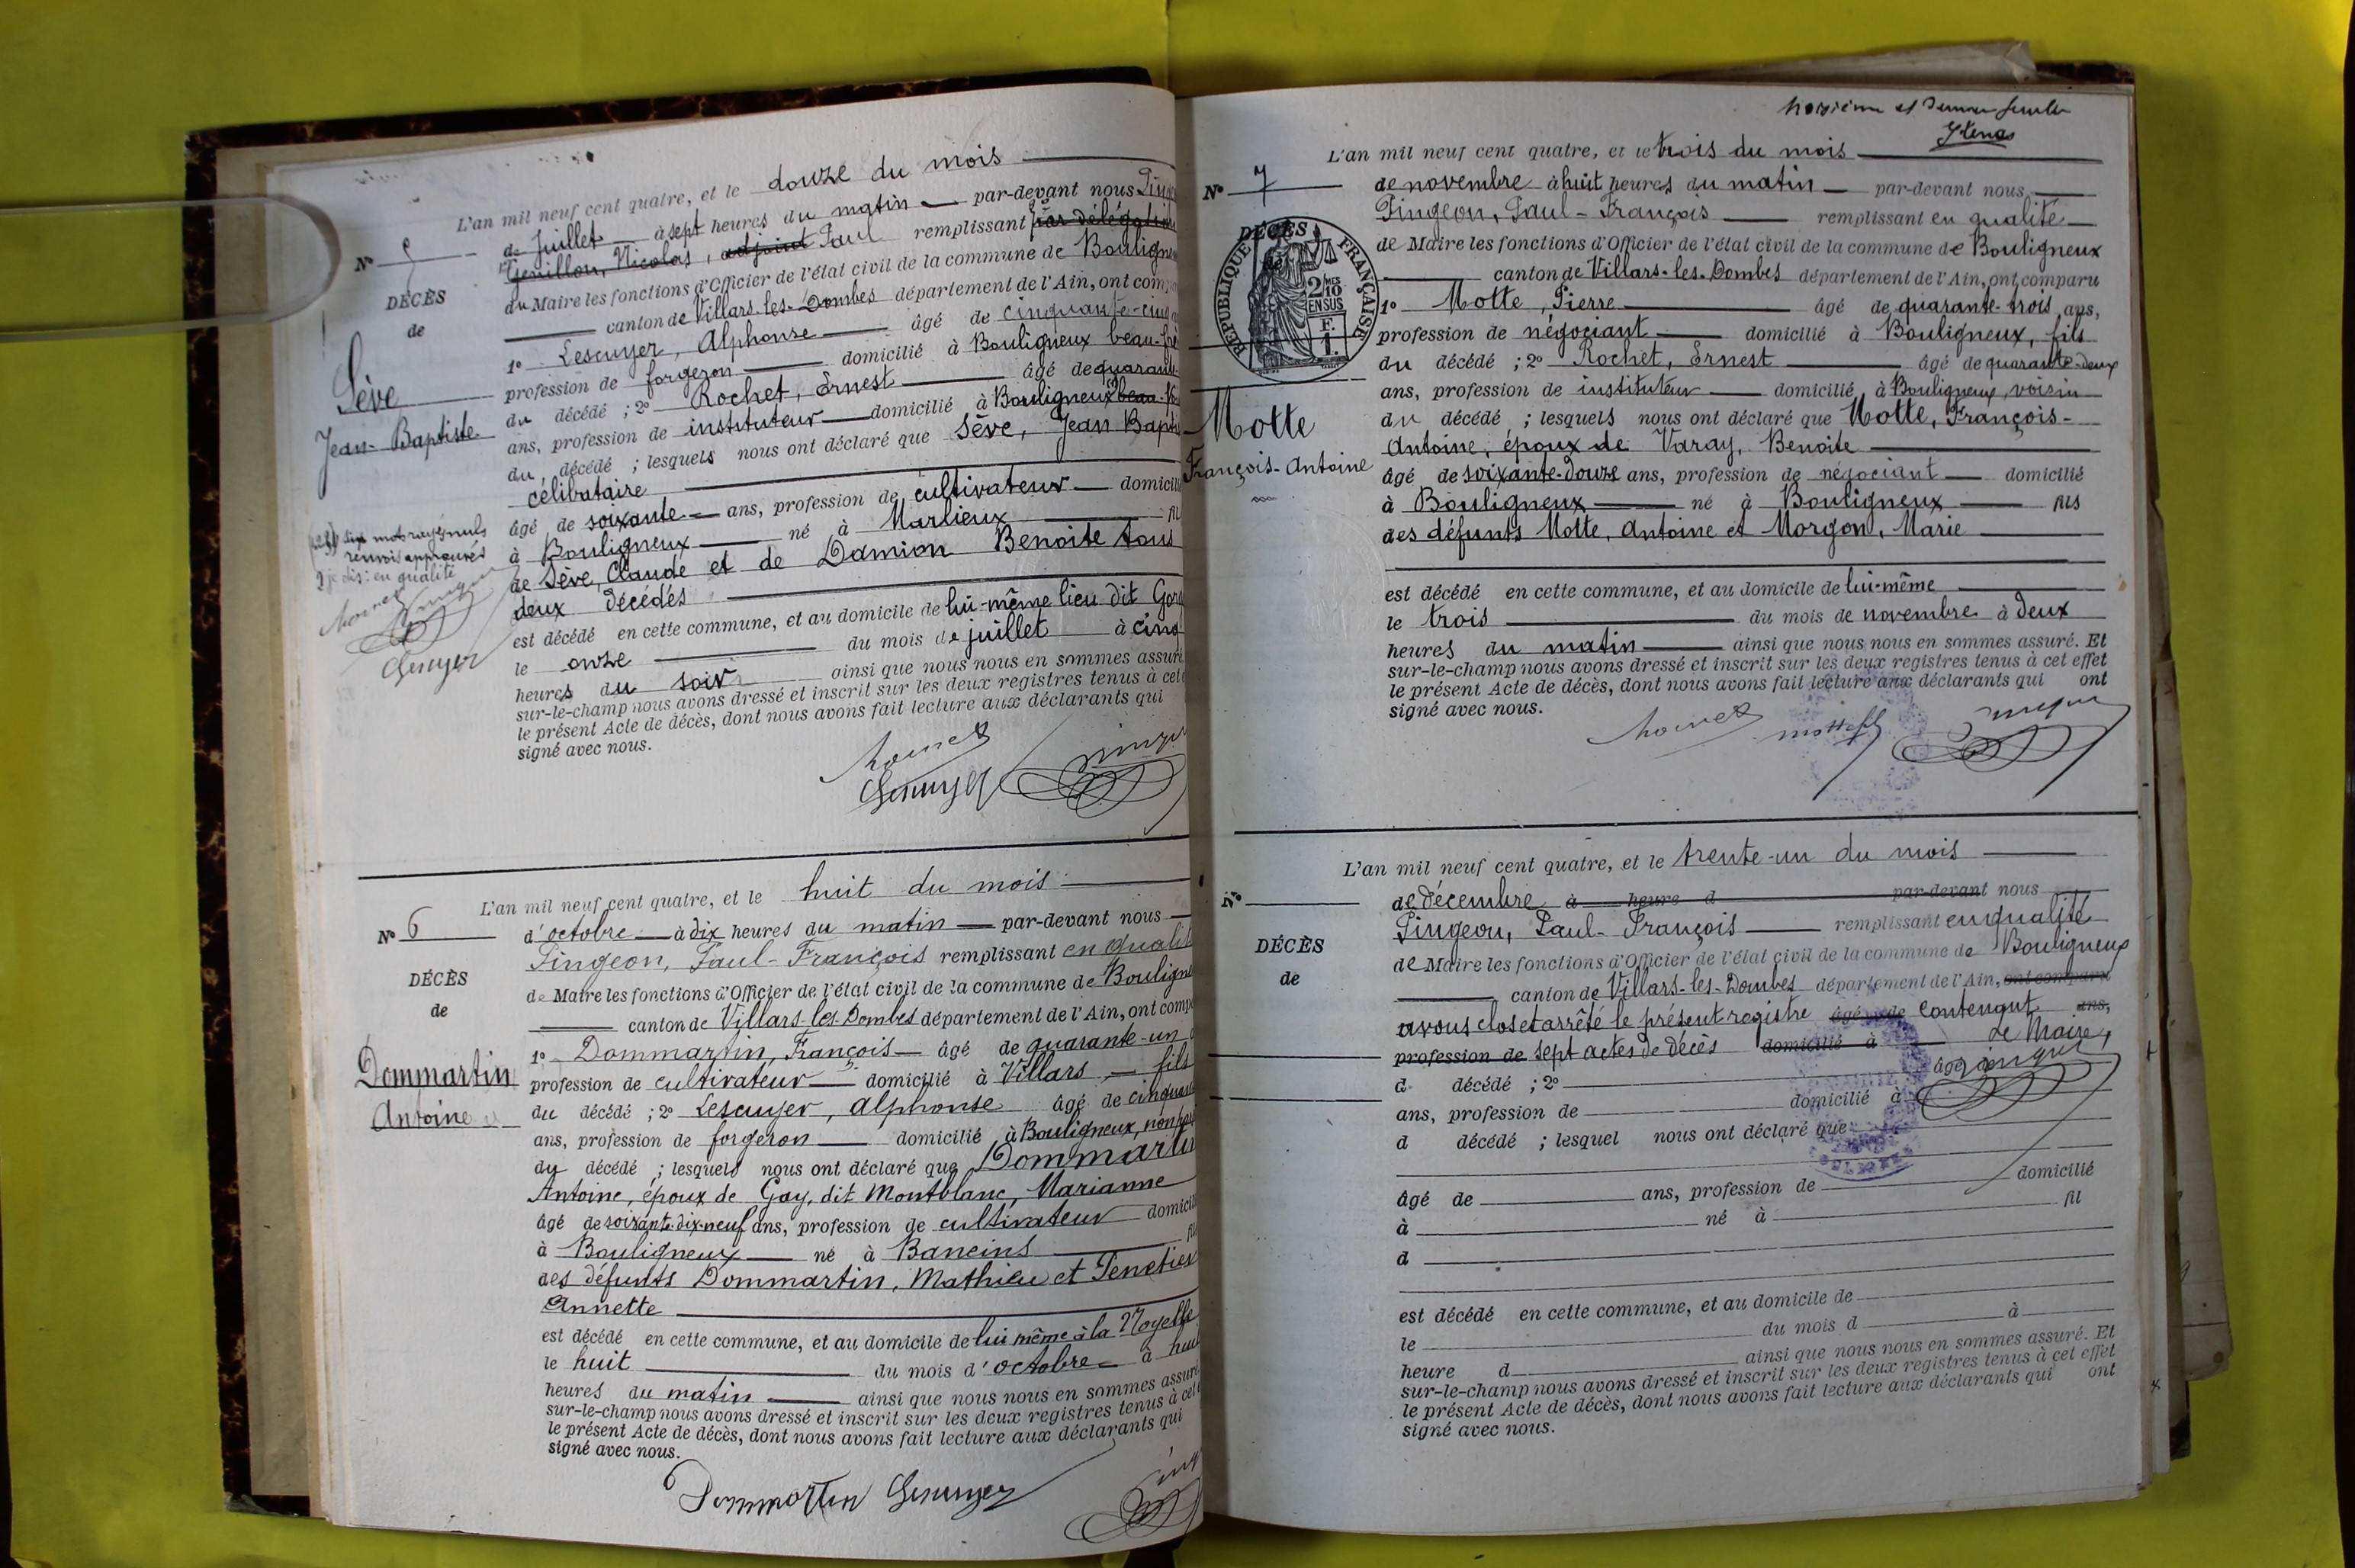 L'an mil neuf cent quatre, et le douze du mois
Nº 5
de Juillet à sept heures du matin par-devant nous
Genillon, Nicolas, adjoint Paul remplissant par délégation
du Maire les fonctions d'Officier de l'état civil de la commune de
canton de Villars-les-Dombes département de l'Ain, ont
DÉCÈS
de
Sève
Jean-Baptiste
1º Lescuyer, Alphonse âgé de cinquante-cinq
profession de forgeron domicilié à Bouligneux beau-
du décédé ; 2º Rochet, Ernest âgé de
ans, profession de instituteur domicilié à Bouligneux
du décédé ; lesquels nous ont déclaré que Sève, Jean
célibataire
âgé de soixante ans, profession de cultivateur
à Bouligneux né à Marlieux
de Sève, Claude et de Damion Benoite tous
deux décédés
est décédé en cette commune, et au domicile de lui-même lieu dit
le onze du mois de juillet à cinq
heures du soir ainsi que nous nous en sommes
sur-le-champ nous avons dressé et inscrit sur les deux registres tenus à
le présent Acte de décès, dont nous avons fait lecture aux déclarants qui
signé avec nous.
mots rayés nuls
renvoi approuvé
je dis : en qualité
L'an mil neuf cent quatre, et le huit du mois
Nº 6
d'octobre à dix heures du matin par-devant nous
Pingeon, Paul-François remplissant en
de Maire les fonctions d'Officier de l'état civil de la commune de
canton de Villars-les-Dombes département de l'Ain, ont
DÉCÈS
de
Dommartin
Antoine
1º Dommartin, François âgé de quarante-un
profession de cultivateur domicilié à Villars, fils
du décédé ; 2º Lescuyer, Alphonse âgé de
ans, profession de forgeron domicilié à Bouligneux,
du décédé ; lesquels nous ont déclaré que
Antoine, époux de Gay, dit Montblanc, Marianne
âgé de soixante-dix-neuf ans, profession de cultivateur
à Bouligneux né à Baneins
des défunts Dommartin, Mathieu et
Annette
est décédé en cette commune, et au domicile de lui même à la
le huit du mois d'octobre à
heures du matin ainsi que nous nous en sommes
sur-le-champ nous avons dressé et inscrit sur les deux registres tenus à
le présent Acte de décès, dont nous avons fait lecture aux déclarants qui
signé avec nous.
Dommartin
L'an mil neuf cent quatre, et le trois du mois
Nº 7
de novembre à huit heures du matin par-devant nous
Pingeon, Paul-François remplissant en qualité
de Maire les fonctions d'Officier de l'état civil de la commune de Bouligneux
canton de Villars-les-Dombes département de l'Ain, ont comparu
DÉCÈS
RÉPUBLIQUE FRANÇAISE
2/10 EN SUS
F.
1.
Motte
François-Antoine
1º Motte, Pierre âgé de quarante-trois ans,
profession de négociant domicilié à Bouligneux, fils
du décédé ; 2º Rochet, Ernest âgé de quarante-deux
ans, profession de instituteur domicilié à Bouligneux, voisin
du décédé ; lesquels nous ont déclaré que Motte, François-
Antoine, époux de Varay, Benoite
âgé de soixante-douze ans, profession de négociant domicilié
à Bouligneux né à Bouligneux fils
des défunts Motte, Antoine et Morgon, Marie
est décédé en cette commune, et au domicile de lui-même
le trois du mois de novembre à deux
heures du matin ainsi que nous nous en sommes assuré. Et
sur-le-champ nous avons dressé et inscrit sur les deux registres tenus à cet effet
le présent Acte de décès, dont nous avons fait lecture aux déclarants qui ont
signé avec nous.
L'an mil neuf cent quatre, et le trente-un du mois
Nº
de décembre à heure d par-devant nous
Pingeon, Paul-François remplissant en qualité
de Maire les fonctions d'Officier de l'état civil de la commune de Bouligneux
canton de Villars-les-Dombes département de l'Ain, ont comparu
DÉCÈS
de
avons clos et arrêté le présent registre âgé de contenant ans,
profession de sept actes de décès domicilié à Le Maire,
d décédé ; 2º âgé
ans, profession de domicilié à
d décédé ; lesquel nous ont déclaré que
âgé de ans, profession de domicilié
à né à fil
d
est décédé en cette commune, et au domicile de
le du mois d à
heure d ainsi que nous nous en sommes assuré. Et
sur-le-champ nous avons dressé et inscrit sur les deux registres tenus à cet effet
le présent Acte de décès, dont nous avons fait lecture aux déclarants qui ont
signé avec nous.